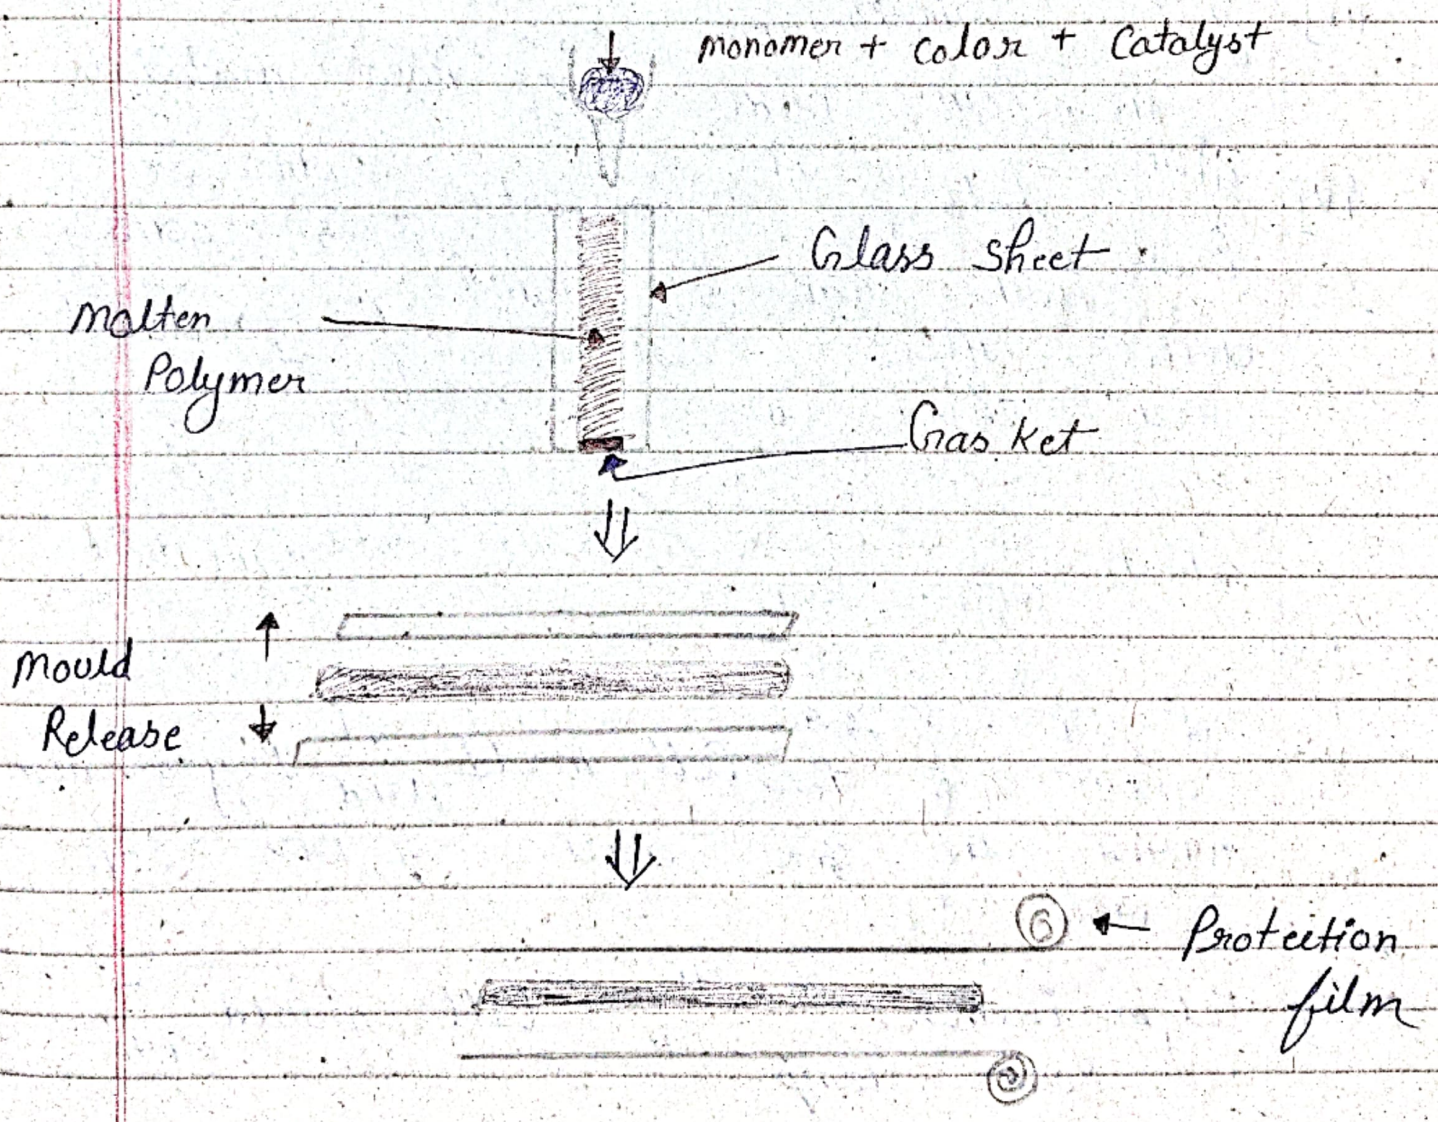 monomer + color + catalyst
Glass sheet
Molten
Polymer
Gasket
Mould
Release
Protection
film